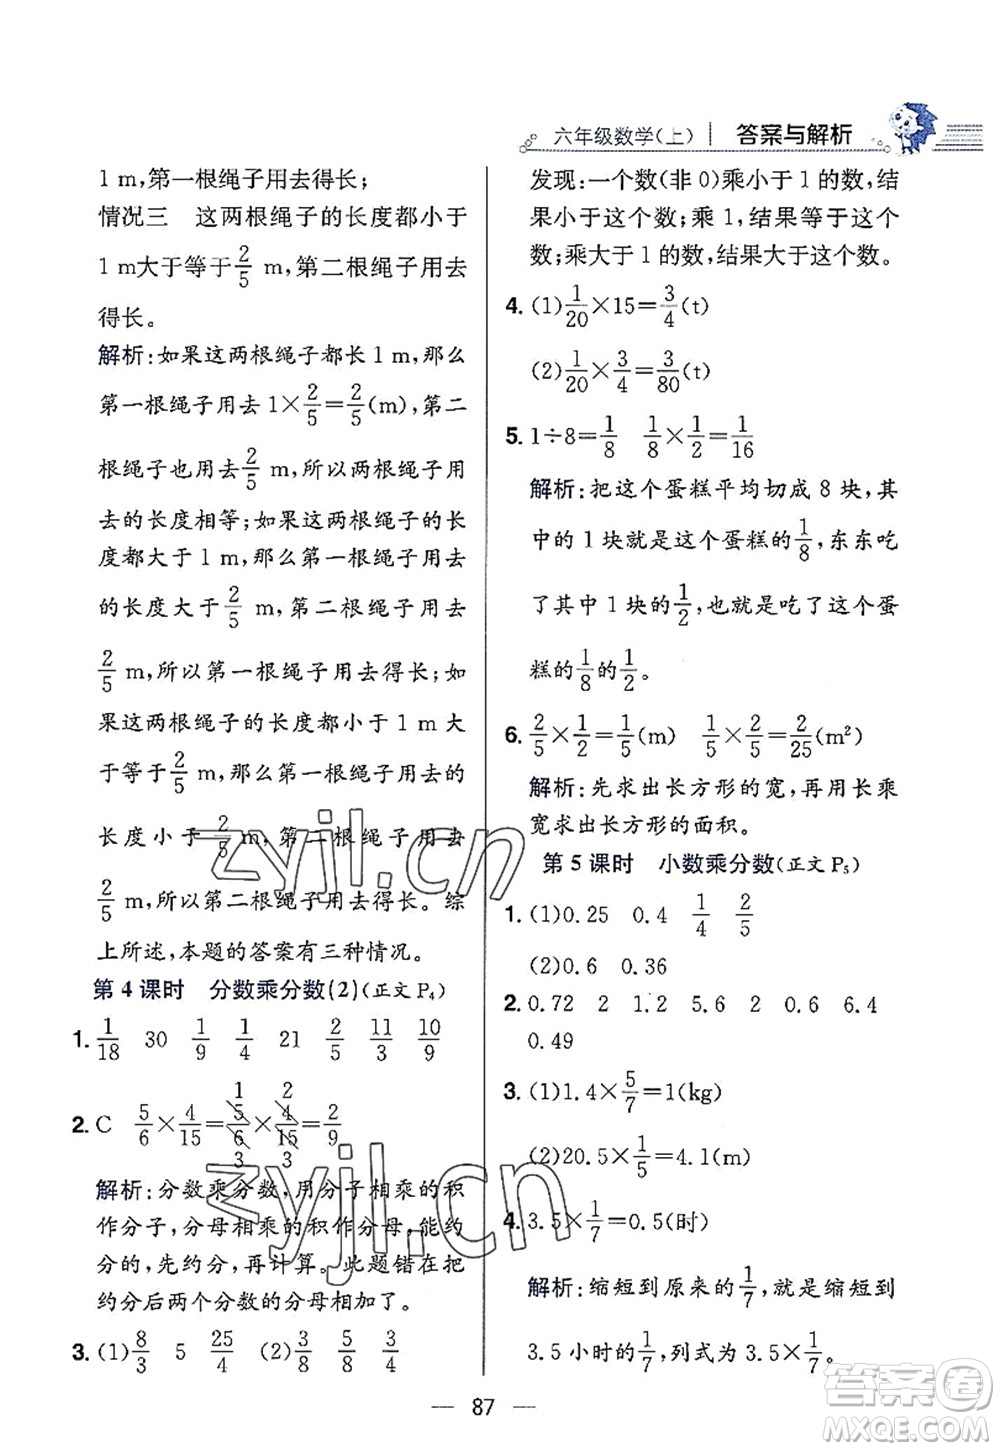 六年级数学(上) | 答案与解析
1 m,第一根绳子用去得长;
情况三 这两根绳子的长度都小于
1 m大于等于2/5 m,第二根绳子用去
得长。
解析:如果这两根绳子都长 1 m,那么
第一根绳子用去 1×2/5=2/5(m),第二
根绳子也用去2/5 m,所以两根绳子用
去的长度相等;如果这两根绳子的长
度都大于 1 m,那么第一根绳子用去
的长度大于2/5 m,第二根绳子用去
2/5 m,所以第一根绳子用去得长;如
果这两根绳子的长度都小于 1 m大
于等于2/5 m,那么第一根绳子用去的
长度小于2/5 m,第二根绳子用去
2/5 m,所以第二根绳子用去得长。综
上所述,本题的答案有三种情况。
第 4 课时 分数乘分数(2)(正文 P4)
1. 1/18 30 1/9 1/4 21 2/5 11/3 10/9
2. C 5/6×4/15=5/6×4/15=2/9
1 2
3 3
解析:分数乘分数,用分子相乘的积
作分子,分母相乘的积作分母,能约
分的,先约分,再计算。此题错在把
约分后两个分数的分母相加了。
3. (1)8/3 5 25/4 (2)3/8 5/8 8/8
发现:一个数(非 0)乘小于 1 的数,结
果小于这个数;乘 1,结果等于这个
数;乘大于 1 的数,结果大于这个数。
4. (1)1/20×15=3/4(t)
(2)1/20×3/4=3/80(t)
5. 1÷8=1/8 1/8×1/2=1/16
解析:把这个蛋糕平均切成 8 块,其
中的 1 块就是这个蛋糕的1/8,东东吃
了其中 1 块的1/2,就是吃了这个蛋
糕的1/8的1/2。
6. 2/5×1/2=1/5(m) 1/5×2/5=2/25(m²)
解析:先求出长方形的宽,再用长乘
宽求出长方形的面积。
第 5 课时 小数乘分数(正文 P5)
1. (1)0.25 0.4 1/4 2/5
(2)0.6 0.36
2. 0.72 2 1.2 5.6 2 6.4
0.49
3. (1)1.4×5/7=1(kg)
(2)20.5×1/5=4.1(m)
4. 3.5×1/7=0.5(时)
解析:缩短到原来的1/7,就是缩短到
3.5 小时的1/7,列式为 3.5×1/7。
— 87 —
zyjl.cn
zyjl.cn
答案圈
MXQE.COM